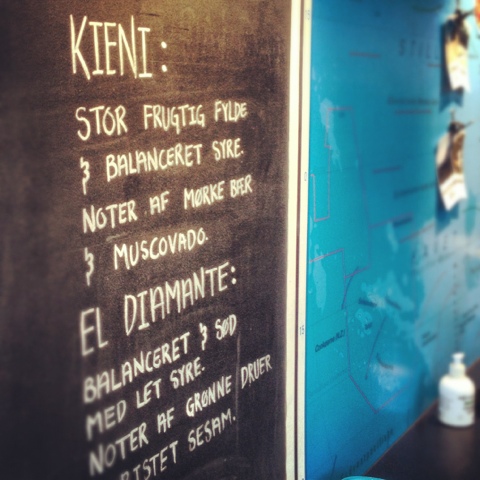 KIENI:
STOR FRUGTIG FYLDE
& BALANCERET SYRE.
NOTER AF MØRKE BÆR
& MUSCOVADO.
EL DIAMANTE:
BALANCERET & SØD
MED LET SYRE.
NOTER AF GRØNNE DRUER
RISTET SESAM.